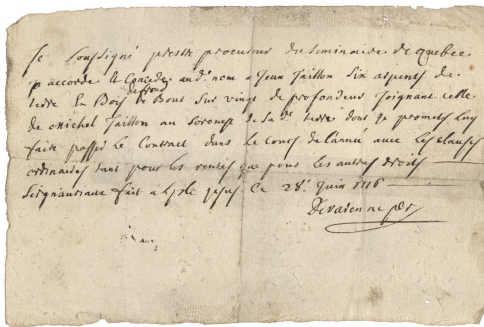 Je soussigné prestre procureur du seminaire de quebec
accorde et concede au d. nom a Jean Taillon six arpens de
de front
terre En Bois de Bout sur vingt de profondeur joignant celle
de michel Taillon au de sa de terre dont je promets luy
faire passer Le Contract dans le Cours de l'année avec les clauses
ordinaires tant pour les rentes que pour les autres droits
seigneuriaux fait a L'isle jesus Ce 28e Juin
Devarenne ptre